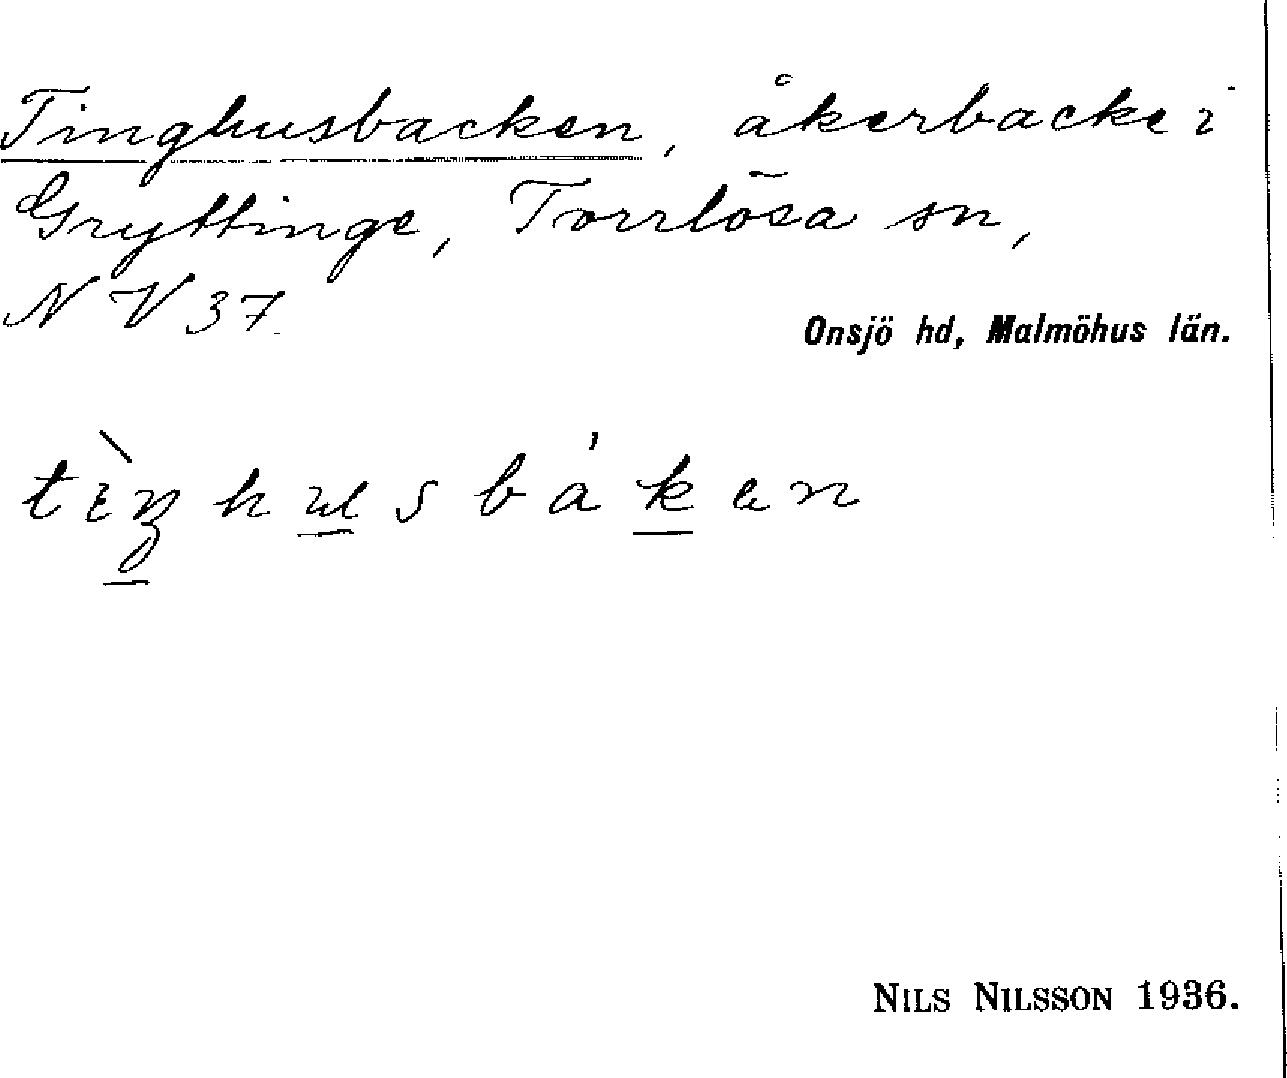 Tinghusbacken, åkerbacke i
Gryttinge, Torrlösa sn,
N V 37.
Onsjö hd, Malmöhus län.
NILS NILSSON 1936.